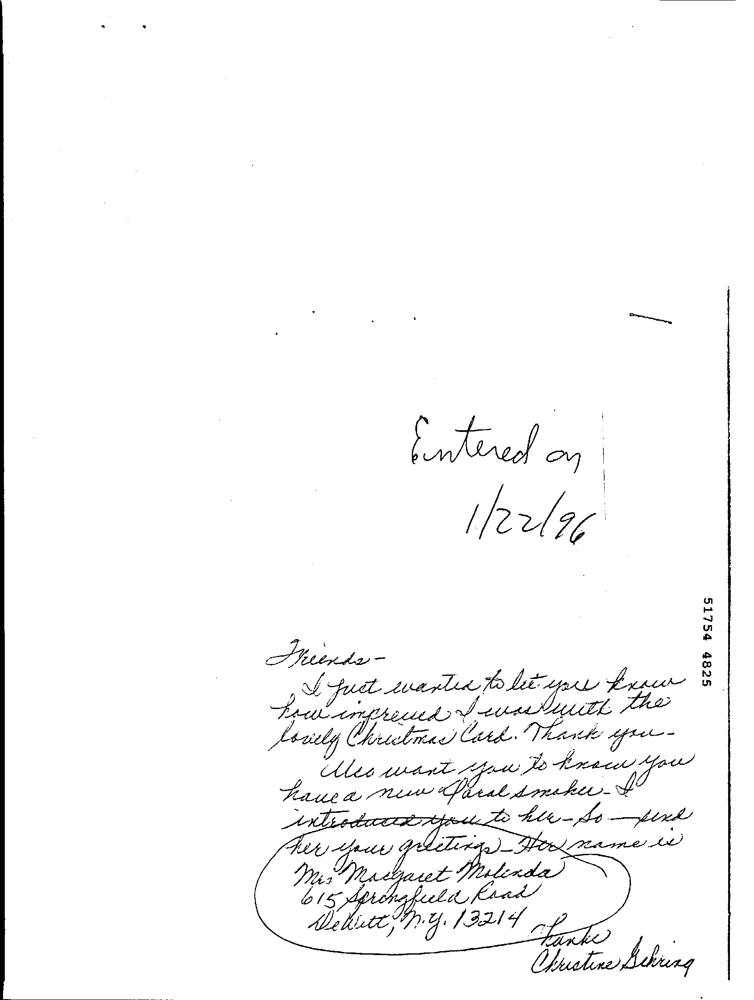 Entered on
1/22/96
51754 4825
Friends-
I just wanted to let you know
how impressed I was with the
lovely Christmas Card. Thank you-
Also want you to know you
have a new smoker- I
introduced you to her- So - send
her your greetings- Her name is
Mrs Margaret Molinda
615 Springfield Road
DeWitt, N.Y. 13214
Thanks
Christine Gehring